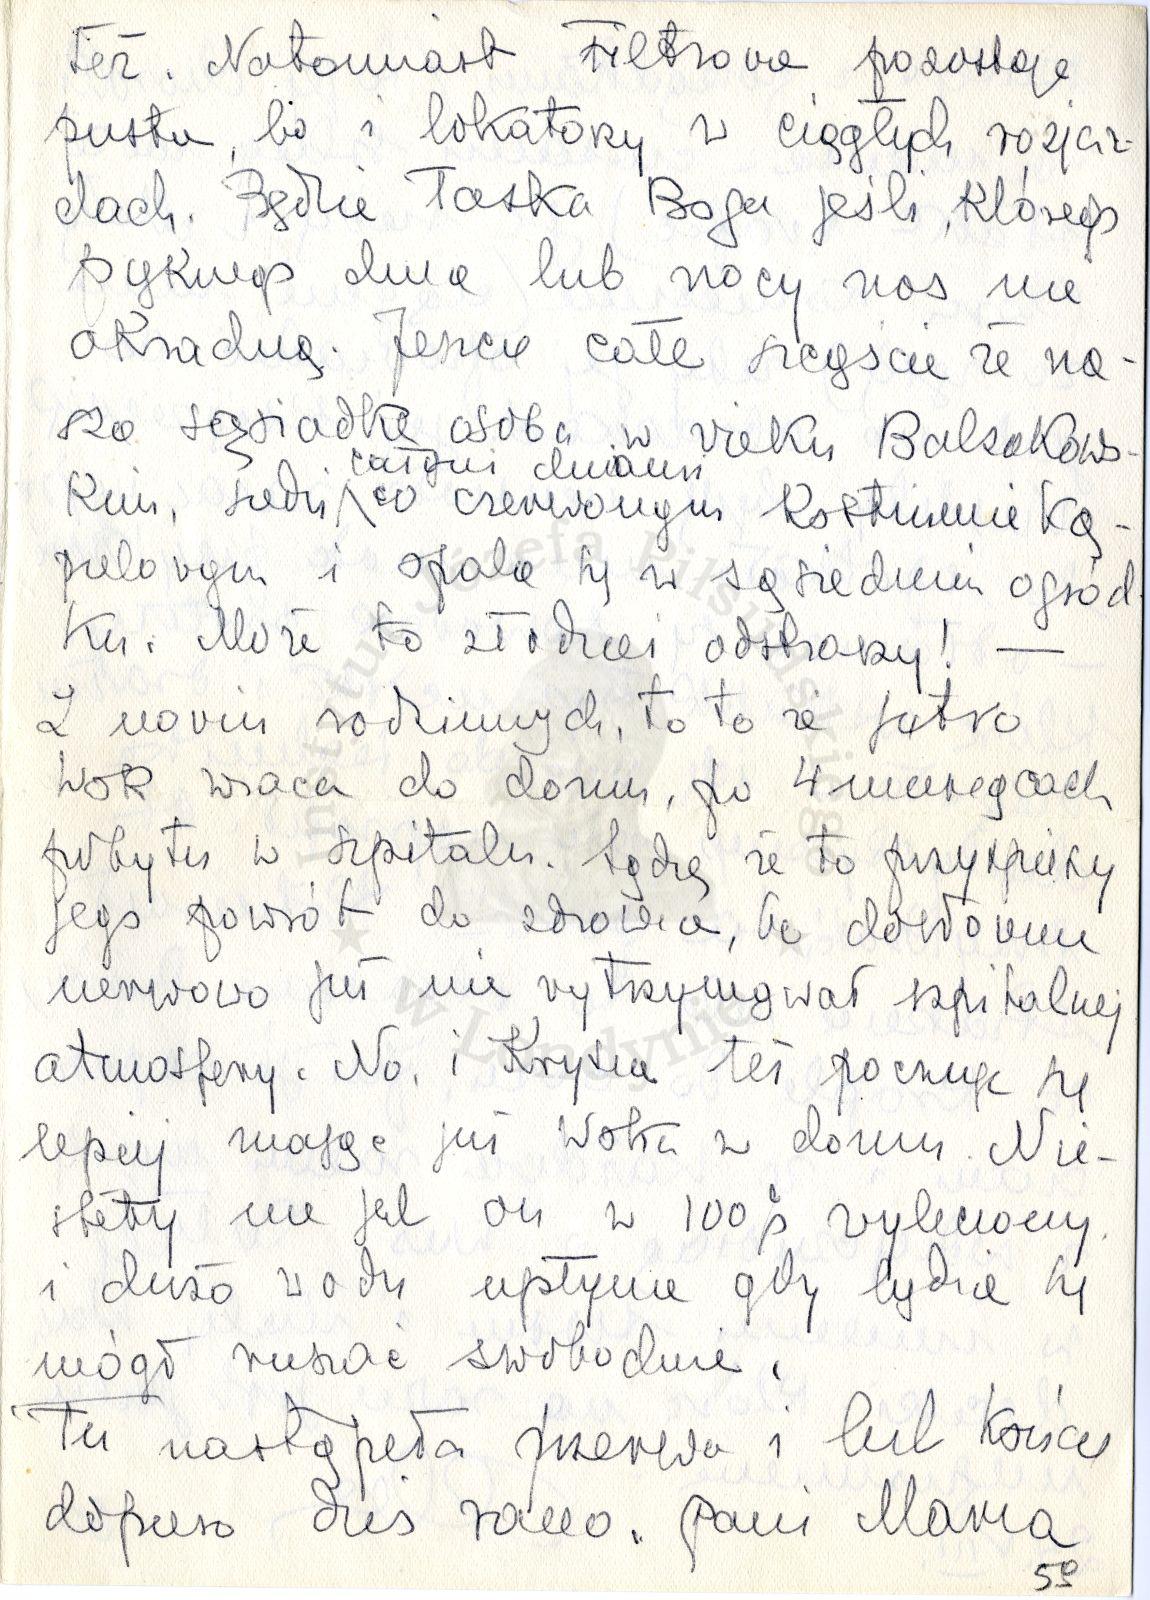 też. Natomiast Filtrowa pozostaje
pusta, bo i lokatorzy w ciągłych rozjaz-
dach. Będzie łaska Boga jeśli, którego
pięknego dnia lub nocy nas nie
okradną. Jeszcze całe szczęście że na-
sza sąsiadka osoba w wieku Balzakows-
kim, siedzi całymi dniami co czerwonym kostiumie ką-
pielowym i opala się w sąsiednim ogród-
ku. Może to złodziei odstraszy! —
Z nowin rodzinnych, to to że jutro
Wok wraca do domu, po 4 miesiącach
pobytu w szpitalu. Sądzę że to przyspieszy
jego powrót do zdrowia, bo dosłownie
nerwowo już nie wytrzymywał szpitalnej
atmosfery. No, i Krysia też poczuje się
lepiej mając już Woka w domu. Nie-
stety nie jest on w 100% wyleczony.
i dużo wody upłynie gdy będzie się
mógł ruszać swobodnie.
Tu nastąpiła przerwa i list kończę
dopiero dziś rano. Pani Maria
5º
Instytut Józefa Piłsudskiego
w Londynie